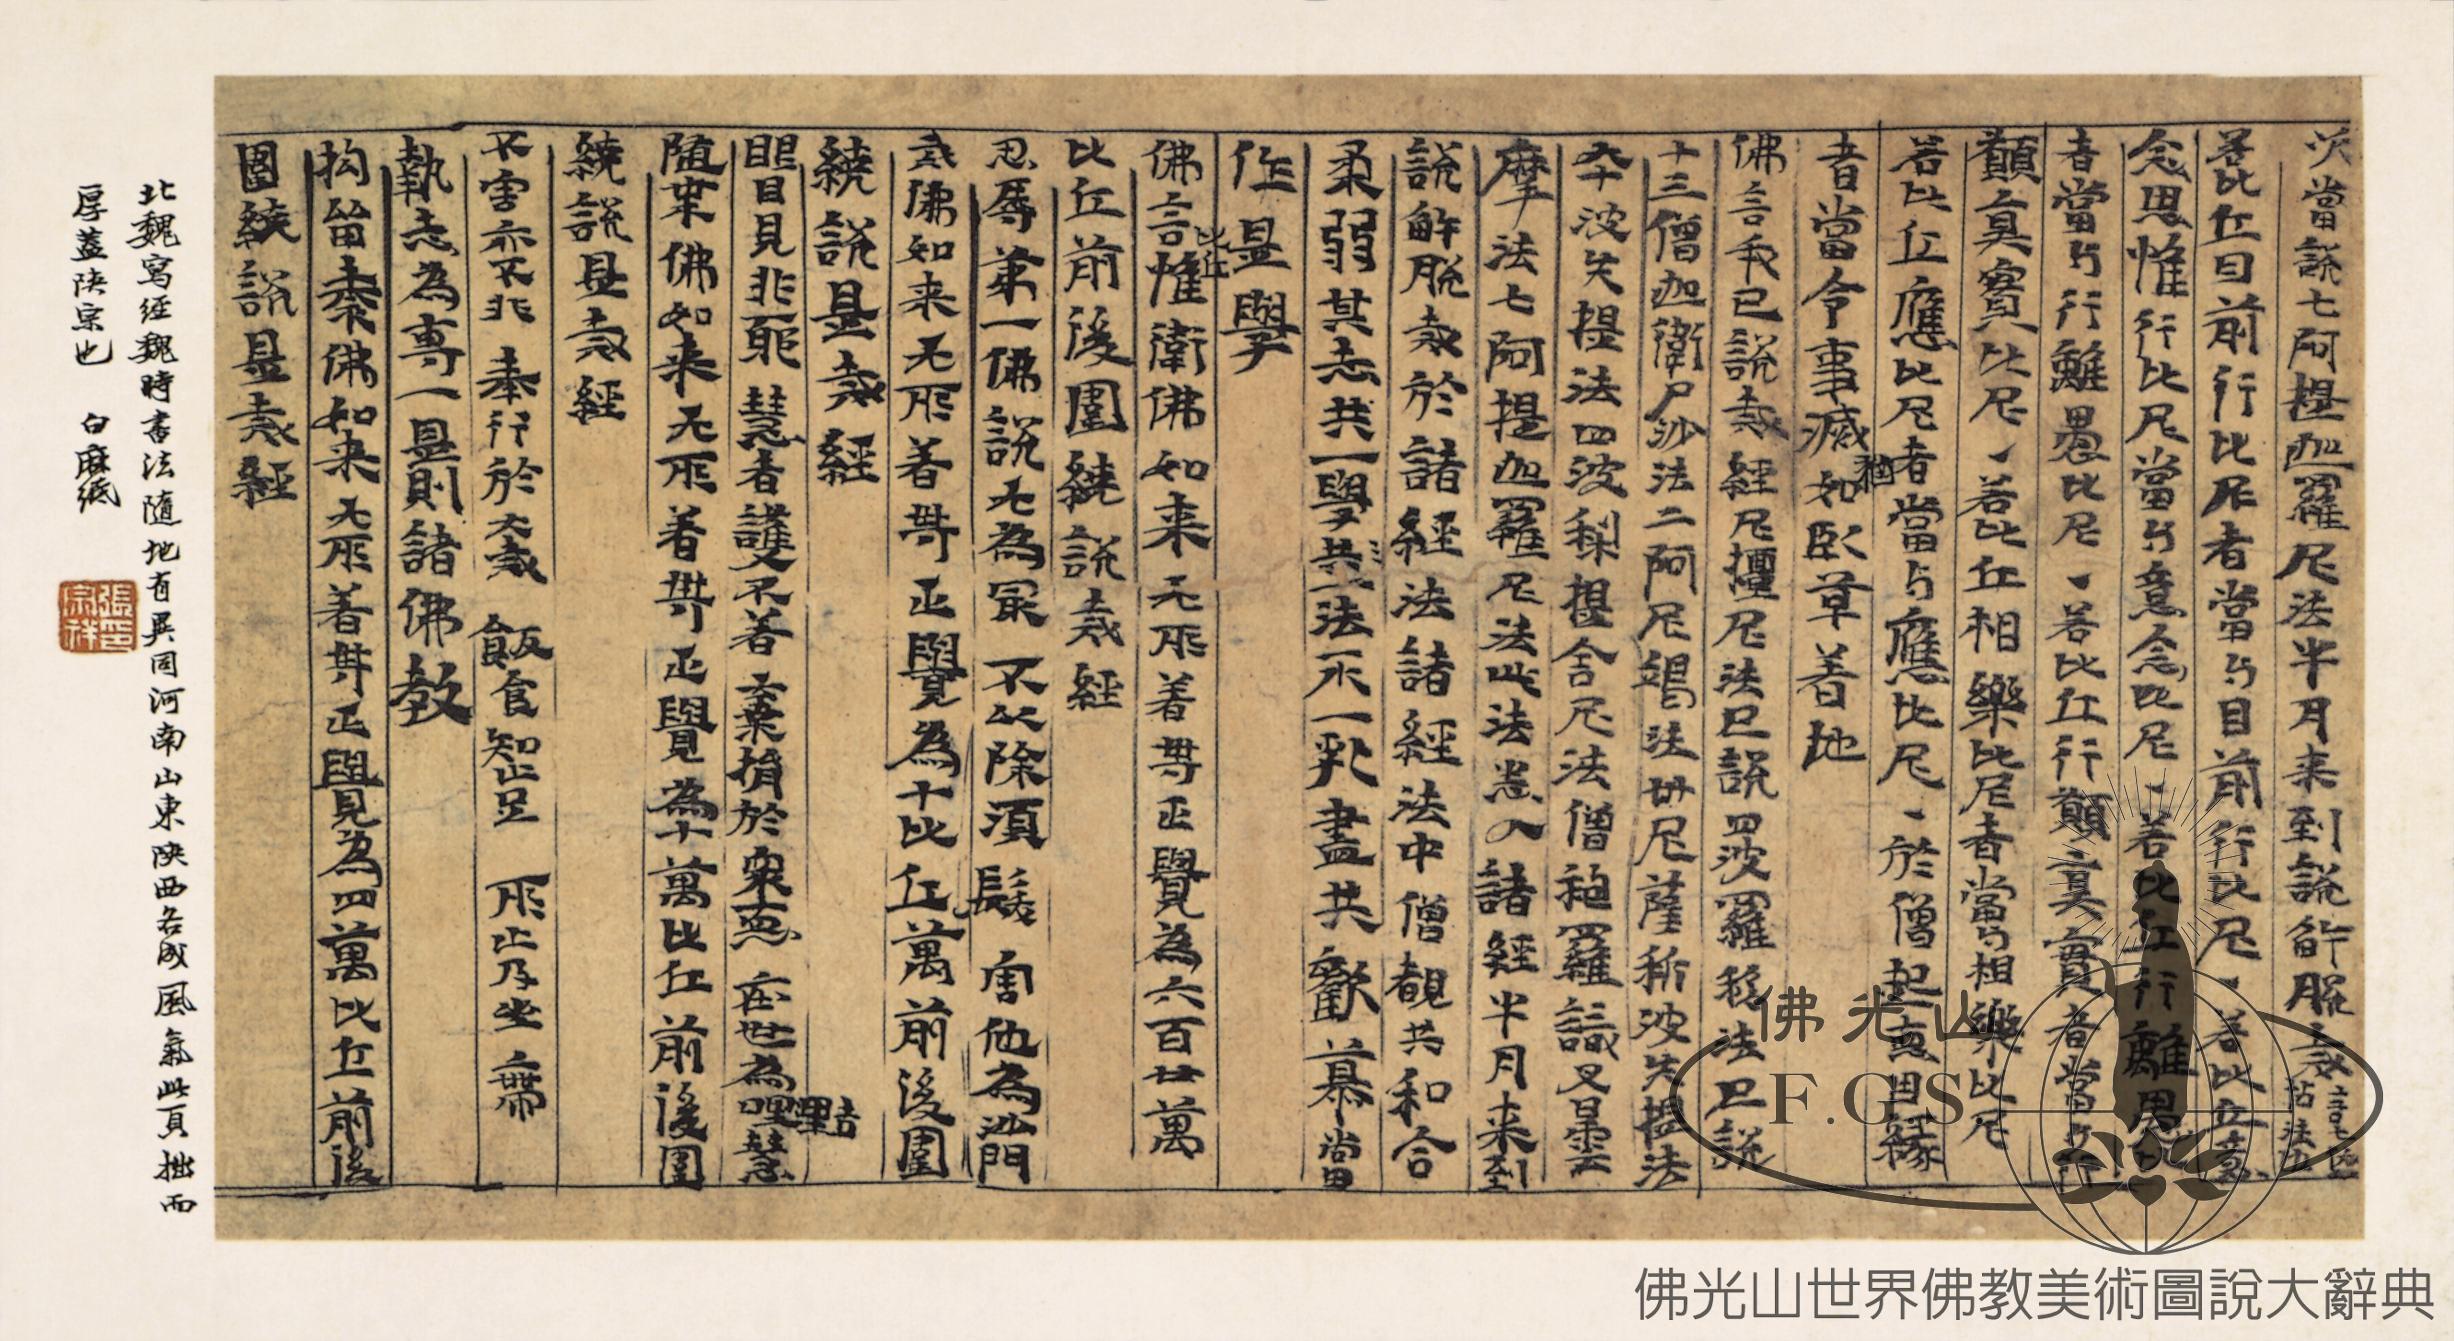 次當說七阿提迦羅尼法半月来到說解脫戒
若比丘目前行比尼者當与目前行比尼、若比丘意
念思惟行比尼當与意念比尼、若比丘行離愚
者當与行離愚比尼、若比丘行顛真實者當与行
顛真實比尼、若比丘相樂比尼者當与相樂比尼
若比丘應比尼者當与應比尼、於僧起惡因緣
者當令事滅猶如臥草著地
佛言我已說戒經尼擅尼法已說四波羅移法已說
十三僧伽衛尸沙法二阿尼竭法卅尼薩祈波失提法
九十波失提法四波梨提舍尼法僧袍羅識叉曇
摩法七阿提迦羅尼法此法悉入諸經半月来到
說解脫戒於諸經法諸經法中僧都共和合
柔弱其志共一學共法水一乳盡共歡慕當
作是學
佛言比丘惟衛佛如来无所著等正覺為六百廿萬
比丘前後圍繞說戒經
忍辱第一佛說无為冣 不以除湏髮 害他為沙門
式佛如来无所著等正覺為十比丘萬前後圍
繞說是戒經
眼目見非耶 慧者護不著 棄捐於衆惡 在世為黠慧
随葉佛如来无所著等正覺為十萬比丘前後圍
繞說是戒經
不害亦不非 奉行於大戒 飯食知止足 所止及坐席
執志為專一 是則諸佛教
拘留秦佛如来无所著等正覺為四萬比丘前後
圍繞說是戒經
北魏寫經魏時書法隨地有異同河南山東陝西各成風氣此頁拙而
厚蓋陝宗也 白麻紙
張宗祥印
佛光山
F.G.S
佛光山世界佛教美術圖說大辭典